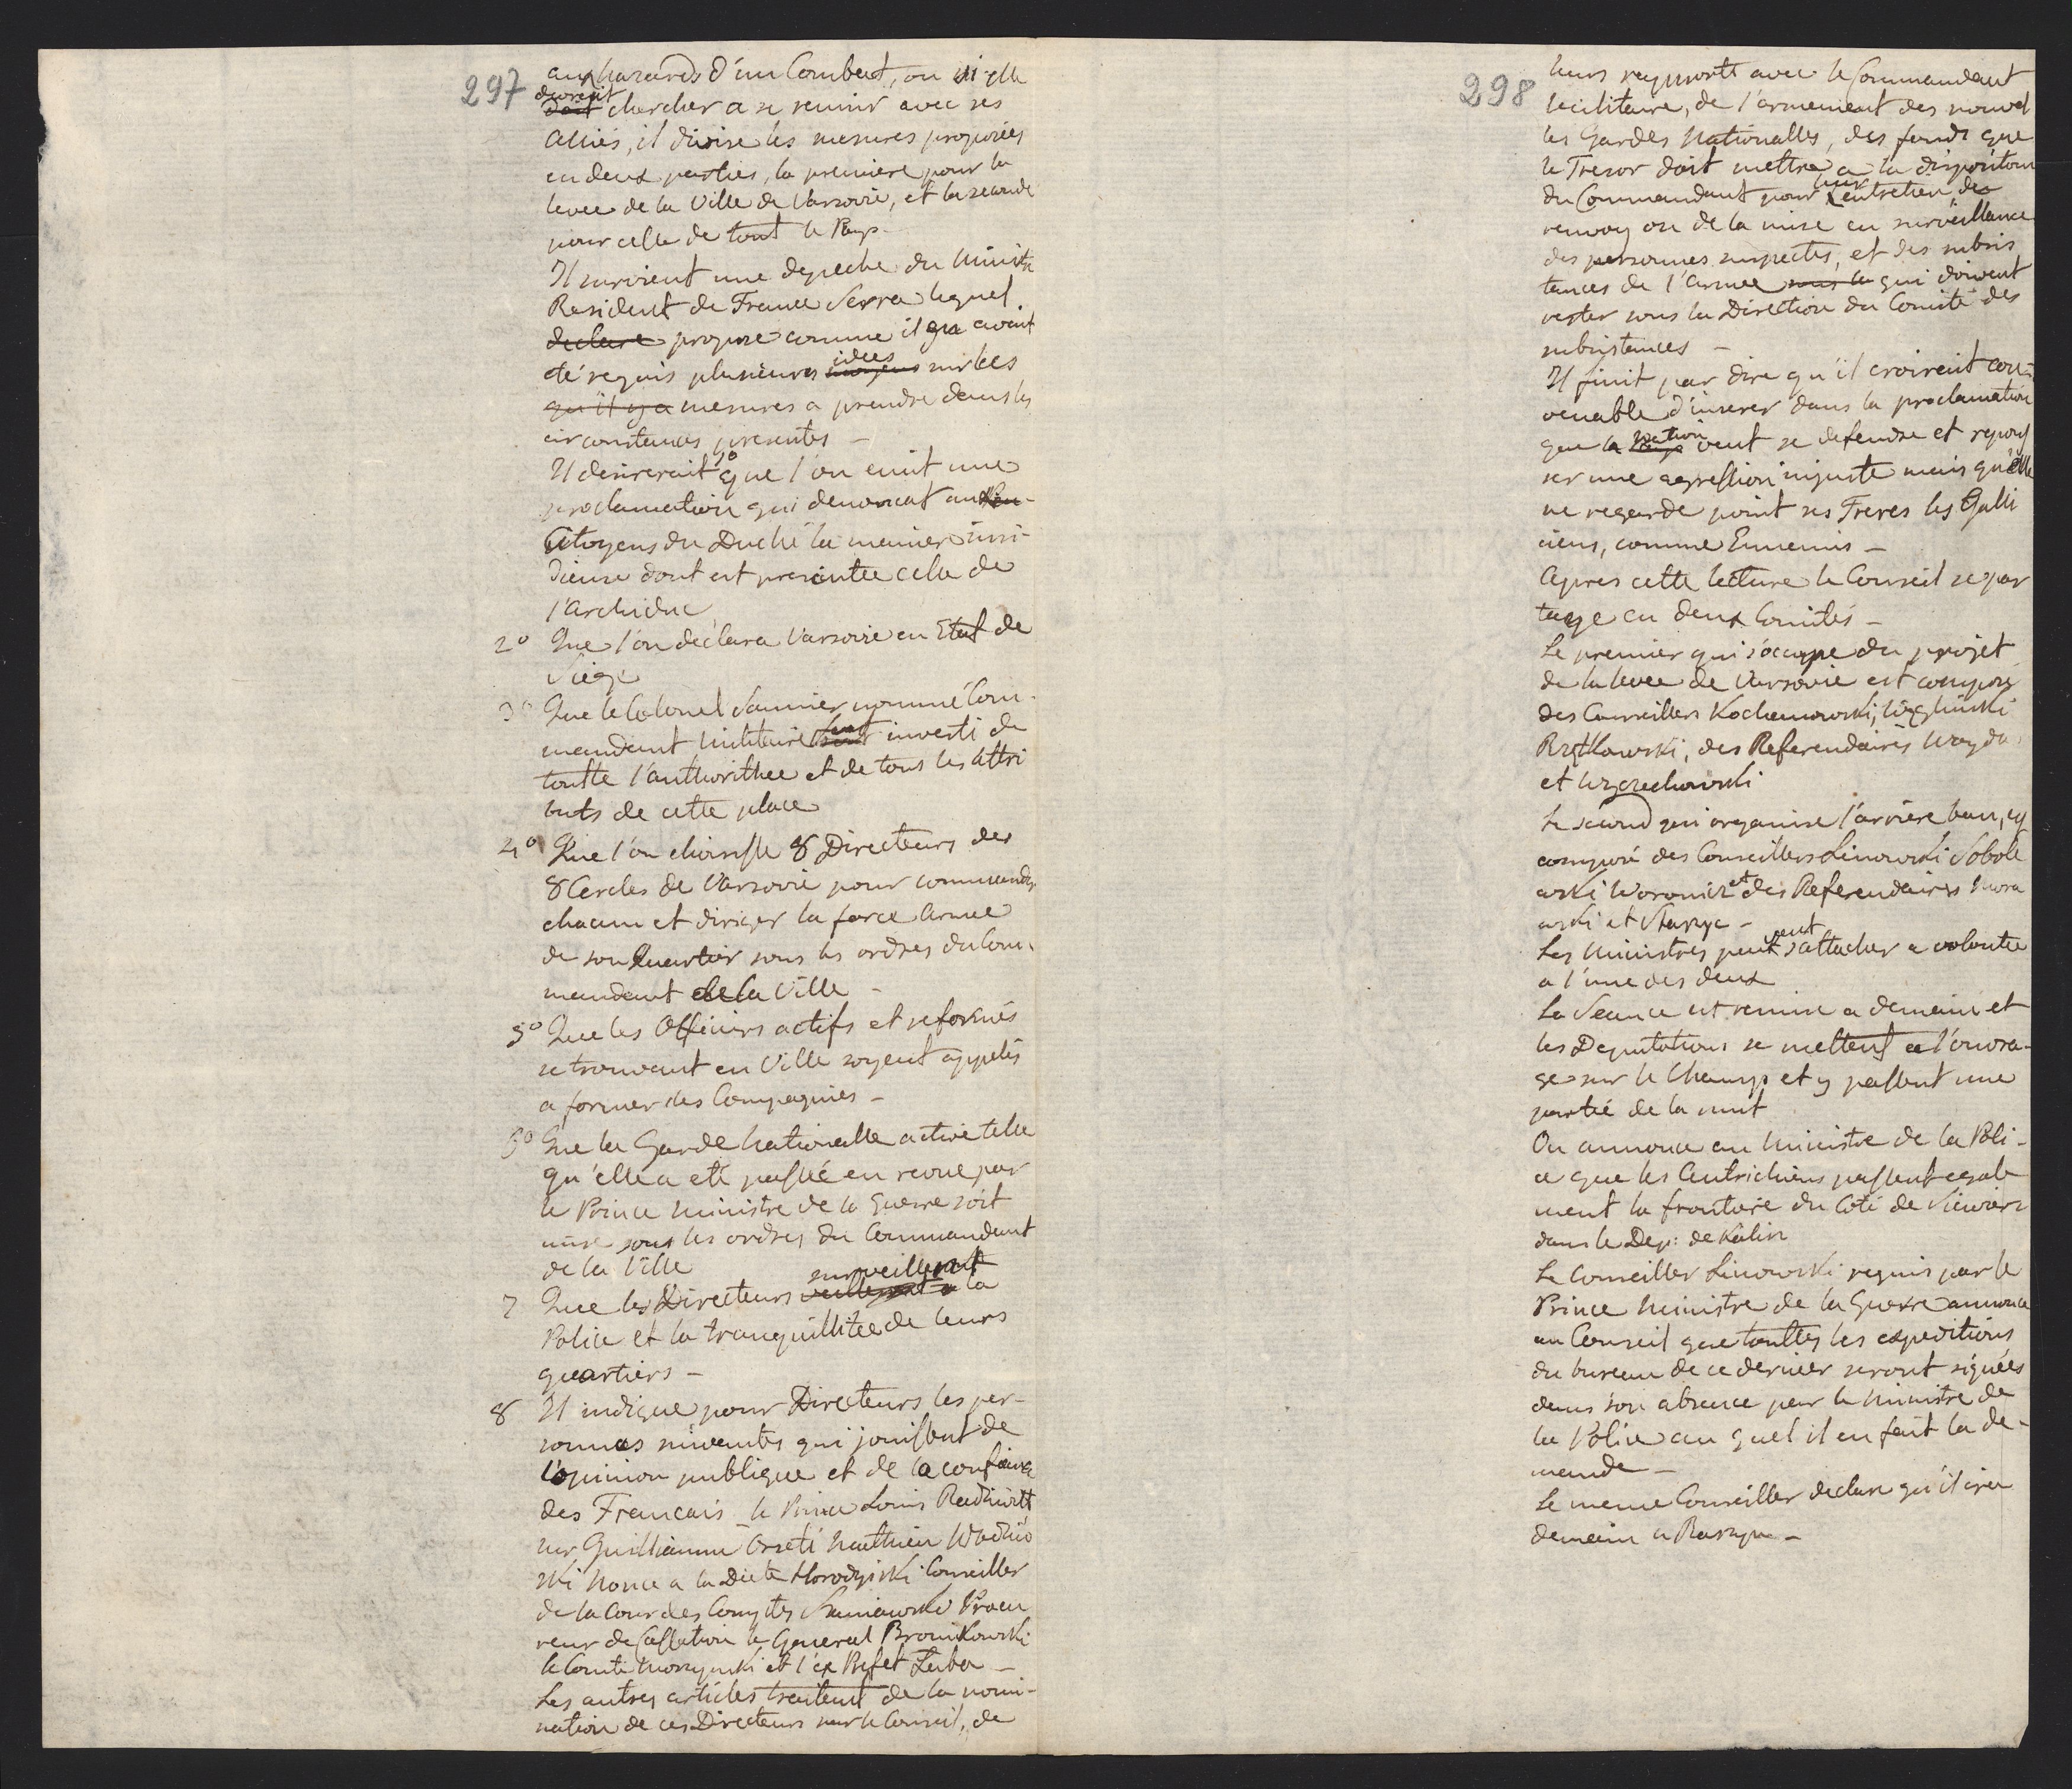 297
aux hazards d'un Combat, ou si elle
devroit
doit chercher a se reunir avec ses
Alliés, il divise les mesures proposées
en deux parties, la premiere pour la
levee de la Ville de Varsovie, et la seconde
pour celle de tout le Pays -
Il survient une depeche du Ministre
Resident de France Serra lequel
declare propose comme il en avait
idees
eté requis plusieures moyens sur les
qu'il y a mesures a prendre dans les
circonstances presentes -
1o
Il desirerait que l'on emit une
proclamation qui denoncat aux
Citoyens du Duché la maniere insi-
dieuse dont est presentée celle de
l'Archiduc
2o Que l'on declara Varsovie en Etat de
Siege
3o Que le Colonel Saunier nommé Com-
mandant Militaire soit investi de
toutte l'authorithee et de tous les attri
buts de cette place
4o Que l'on choisisse 8 Directeurs des
8 Cercles de Varsovie pour commander
chacun et diriger la force Armee
de son Quartier sous les ordres du Com-
mandant de la Ville -
5o Que les Officiers actifs et reformés
se trouvant en Ville soyent appelés
a former des Compagnies -
6o Que la Garde Nationalle active telle
qu'elle a eté passée en revue par
le Prince Ministre de la Guerre soit
mise sous les ordres du Commandant
de la Ville
surveillent
7 Que les Directeurs veillent a la
Police et la tranquillitee de leurs
quartiers -
8 Il indique pour Directeurs les per-
sonnes suivantes qui jouissent de
l'opinion publique et de la confiance
des Francais le Prince Louis Radziwill
Mr Guilliaume Orseti Mathieu Wodzin
ski Nonce a la Diete Horodyski Conseiller
de la Cour des Comptes Szaniawski Procu
reur de Cassation le General Bronikowski
le Comte Moszynski et l'ex Prefet Łuba -
Les autres articles traitent de la nomi-
nation de ces Directeurs par le Conseil, de
298
leurs rapports avec le Commandant
Militaire, de l'armement des nouvel
les Gardes Nationalles, des fonds que
le Tresor doit mettre a la disposition
du Commandant pour entretien de
renvoy ou de la mise en surveillance
des personnes suspectes, et des subsis
tances de l'armee sous la qui doivent
rester sous la Direction du Comité des
subsistances -
Il finit par dire qu'il croiroit con-
venable d'inserer dans la proclamation
nation
que la Pays veut se defendre et repous
ser une agression injuste mais qu'elle
ne regarde point ses Freres les Galli
ciens, comme Ennemis -
Apres cette lecture le Conseil se par
tage en deux Comités -
Le premier qui s'occupe du projet
de la levee de Varsovie est composé
des Conseillers Kochanowski, Węgliński
des Referendaires Woyda
et Wyczechowski
Le second qui organise l'arriere ban, est
composé des Conseillers Linowski Sobole
et
wski Woronicz des Referendaires Mora
wski et Staszyc -
vent
Les Ministres peut s'attacher a volontee
a l'une des deux
La Seance est remise a demain et
les Deputations se mettent a l'ouvra-
ge sur le Champ et y passent une
partie de la nuit
On annonce au Ministre de la Poli-
ce que les Autrichiens passent egale
ment la frontiere du Coté de Siewierz
dans le Dep: de Kalisz
Le Conseiller Linowski requis par le
Prince Ministre de la Guerre annonce
au Conseil que touttes les expeditions
du bureau de ce dernier seront signées
dans son absence par le Ministre de
la Police au quel il en fait la de-
mande -
Le meme Conseiller declare qu'il ira
demain a Raszyn -